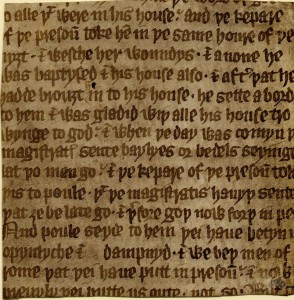 o alle þt were in his house. and þe kepare
of þe presoun toke hē in þe same houre of þe
nyzt. & wesche her woundys. & a none he
was baptysed & his house also. & aftr þat he
hadde brouzt in to his house. he sette a bord
to hem & was gladid wiþ alle his house tro
wynge to god. & when þe day was comyn þe
magistratꝭ sente baylyes or bedels seyinge
lat þo men go. & þe kepare of þe presoun tolde
þis to poule. þt þe magistratis hauyþ sent
þat ze be late go. & þfore goþ now forþ in pe
And poule seyde to hem þei haue betyn v
oppunlyche & dampnyd. & we beþ men of
rome þat þei haue putt in presoun. & now
þei putte us oute. not so